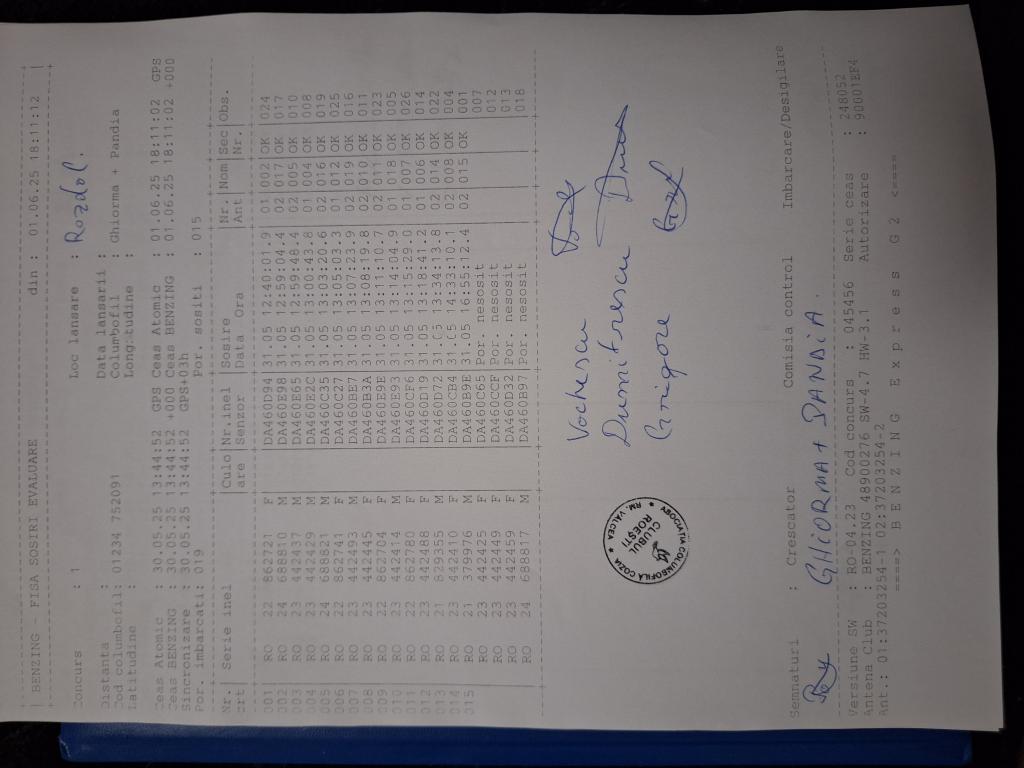 | BENZING - FISA SOSIRI EVALUARE din : 01.06.25 18:11:12 |
Concurs : 1 Loc lansare : Rozdol.
Distanta : Data lansarii :
Cod columbofil: 01234 752091 Columbofil : Ghiorma + Pandia
Latitudine : Longitudine :
Ceas Atomic : 30.05.25 13:44:52 GPS Ceas Atomic : 01.06.25 18:11:02 GPS
Ceas BENZING : 30.05.25 13:44:52 +000 Ceas BENZING : 01.06.25 18:11:02 +000
Sincronizare : 30.05.25 13:44:52 GPS+03h
Por. imbarcati: 019 Por. sositi : 015
Nr.| Serie inel |Culo|Nr.inel|Sosire |Nr.|Nom|Sec|Obs.
crt| |are |Senzor |Data Ora |Ant|Nr.
001| RO 22 862721 F | |DA460D94|31.05 12:40:01.9 |01|002|OK |024
002| RO 24 688810 M | |DA460E98|31.05 12:59:04.4 |02|017|OK |017
003| RO 23 442437 M | |DA460E65|31.05 12:59:48.4 |02|005|OK |010
004| RO 23 442429 M | |DA460E2C|31.05 13:00:43.8 |01|004|OK |008
005| RO 24 688821 M | |DA460C35|31.05 13:03:20.6 |02|016|OK |019
006| RO 22 862741 F | |DA460C27|31.05 13:05:03.3 |01|012|OK |025
007| RO 23 442493 M | |DA460BE7|31.05 13:07:23.9 |02|019|OK |016
008| RO 23 442445 F | |DA460B3A|31.05 13:08:19.8 |02|010|OK |011
009| RO 22 862764 F | |DA460E9E|31.05 13:11:10.7 |02|011|OK |023
010| RO 23 442414 M | |DA460E93|31.05 13:14:04.9 |01|018|OK |005
011| RO 22 862780 F | |DA460CF6|31.05 13:15:29.0 |01|007|OK |026
012| RO 23 442488 F | |DA460D19|31.05 13:18:41.2 |01|006|OK |014
013| RO 21 829355 M | |DA460D72|31.05 13:34:13.8 |02|014|OK |022
014| RO 23 442410 F | |DA460CE4|31.05 14:33:10.1 |02|008|OK |004
015| RO 21 379976 M | |DA460B9E|31.05 16:55:12.4 |02|015|OK |001
RO 23 442425 F | |DA460C65|Por. nesosit 007
RO 23 442449 F | |DA460CCF|Por. nesosit 012
RO 23 442459 F | |DA460D32|Por. nesosit 013
RO 24 688817 M | |DA460B97|Por. nesosit 018
Vochescu
Dumitrescu
Grigore
ASOCIATIA COLUMBOFILA COZIA
RM. VALCEA
CLUBUL
ROESTI
Semnaturi : Crescator Comisia control Imbarcare/Desigilare
GHIORMA + PANDIA.
Versiune SW : RO-04.23 Cod concurs : 045456 Serie ceas : 248052
Antena Club : BENZING 48900276 SW-4.7 HW-3.1 Autorizare : 90601EF4
Ant.: 01:37203254-1 02:37203254-2
====> B E N Z I N G E x p r e s s G 2 <====